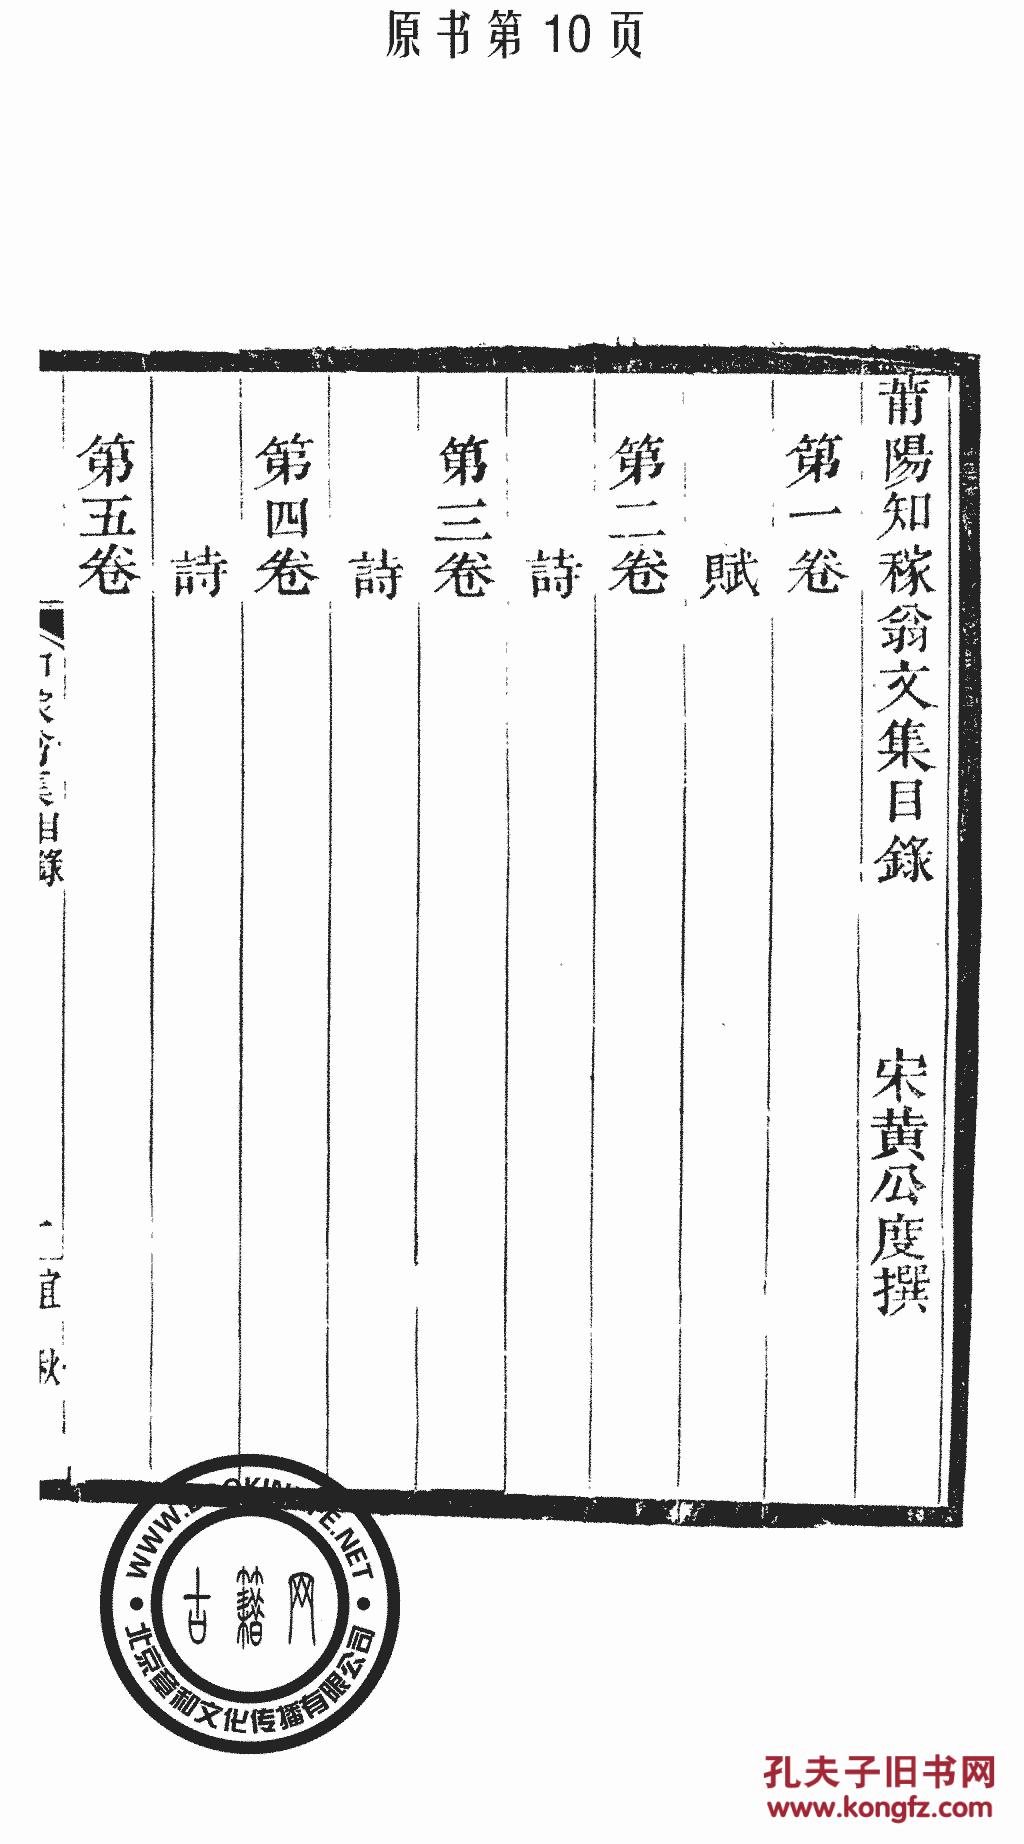 原书第10页
莆陽知稼翁文集目錄 宋黃公度撰
第一卷
賦
第二卷
詩
第三卷
詩
第四卷
詩
第五卷
集目錄
秋
WWW.
.NET
古籍网
北京章和文化传播有限公司
孔夫子旧书网
www.kongfz.com